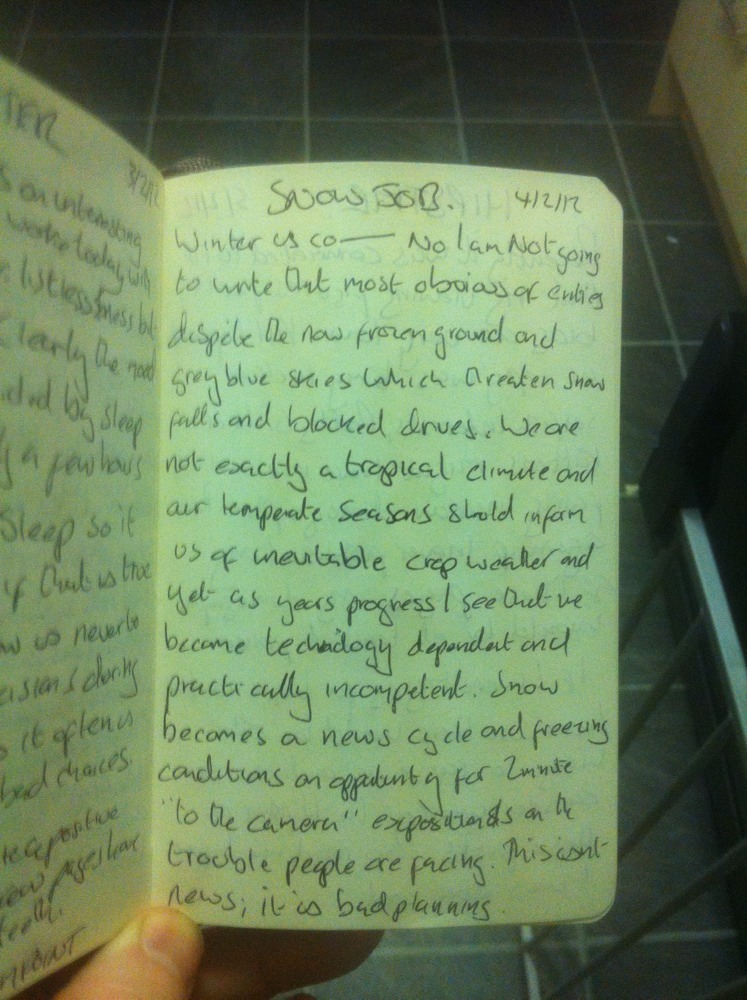 TER
3/2/12
s an interesting
worke today with
listlessness but
clearly the need
ided by sleep
y a few hours
sleep so it
if that is true
w is never to
cisions during
s it often is
bad choices.
positive
pages have
teeth.
POINT
SNOW JOB. 4/2/12
Winter is co— No I am Not going
to write that most obvious of entries
despite the now frozen ground and
grey blue skies which threaten snow
falls and blocked drives. We are
not exactly a tropical climate and
our temperate seasons should inform
us of inevitable crap weather and
yet as years progress I see that we
become technology dependent and
practically incompetent. Snow
becomes a news cycle and freezing
conditions an opportunity for 2 minute
"to the camera" expositions on the
trouble people are facing. This isn't
news; it is bad planning.